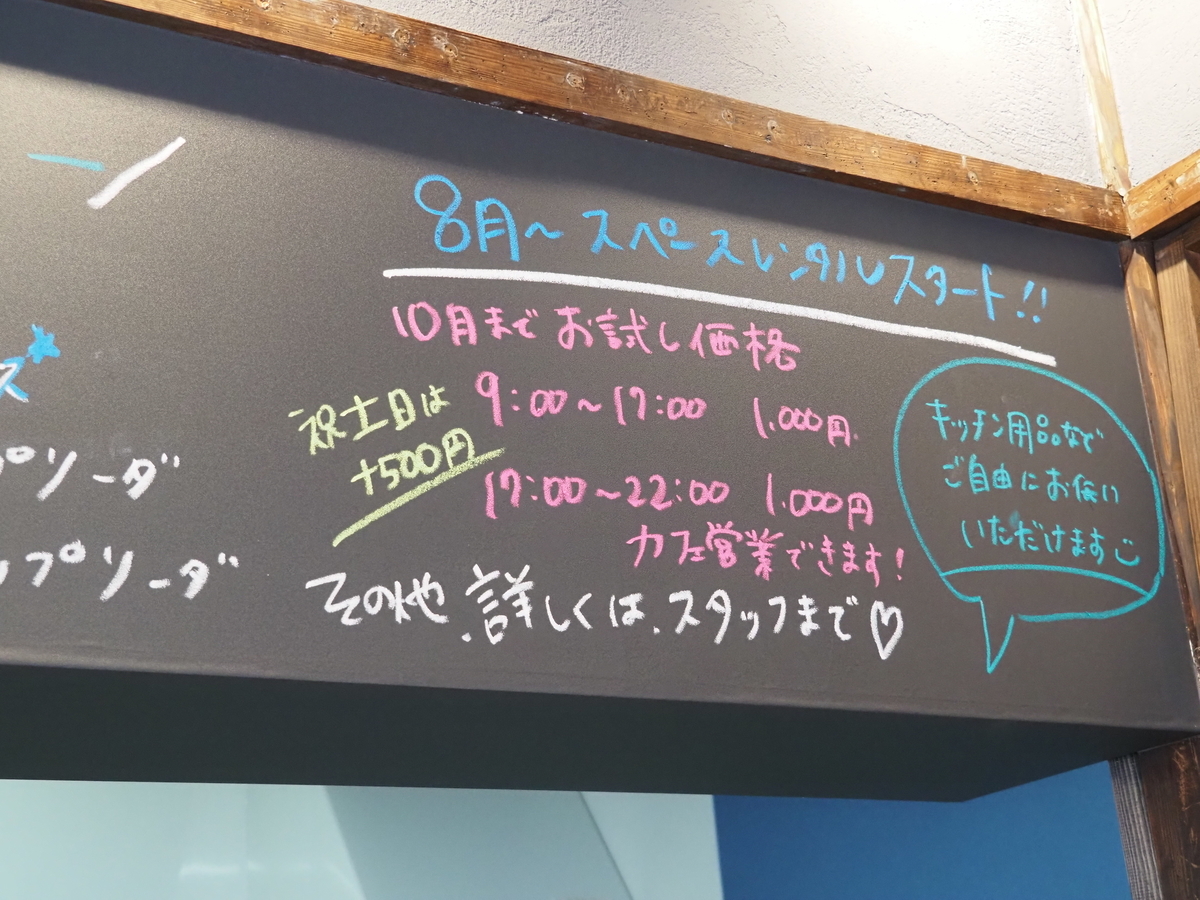 8月～スペースレンタルスタート!!
10月までお試し価格
祝土日は
+500円
9:00～17:00 1,000円
17:00～22:00 1,000円
カフェ営業できます!
その他、詳しくは、スタッフまで♡
キッチン用品など
ご自由にお使い
いただけます
ズ
プソーダ
ップソーダ